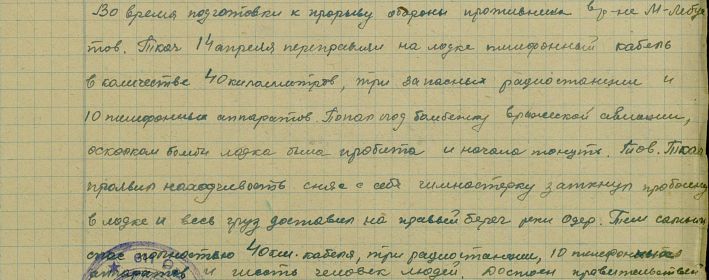 Во время подготовки к прорыву обороны противника в р-не М-Лебу
тов. Ткач 14 апреля переправлял на лодке телефонный кабель
в количестве 40 километров, три запасных радиостанции и
10 телефонных аппаратов. Попал под бомбежку вражеской авиации,
осколком бомбы лодка была пробита и начала тонуть. Тов. Ткач
проявил находчивость сняв с себя гимнастерку заткнул пробоину
в лодке и весь груз доставил на правый берег реки Одер. Тем самым
спас полностью 40 км. кабеля, три радиостанции, 10 телефонных
аппаратов и шесть человек людей. Достоин правительственной